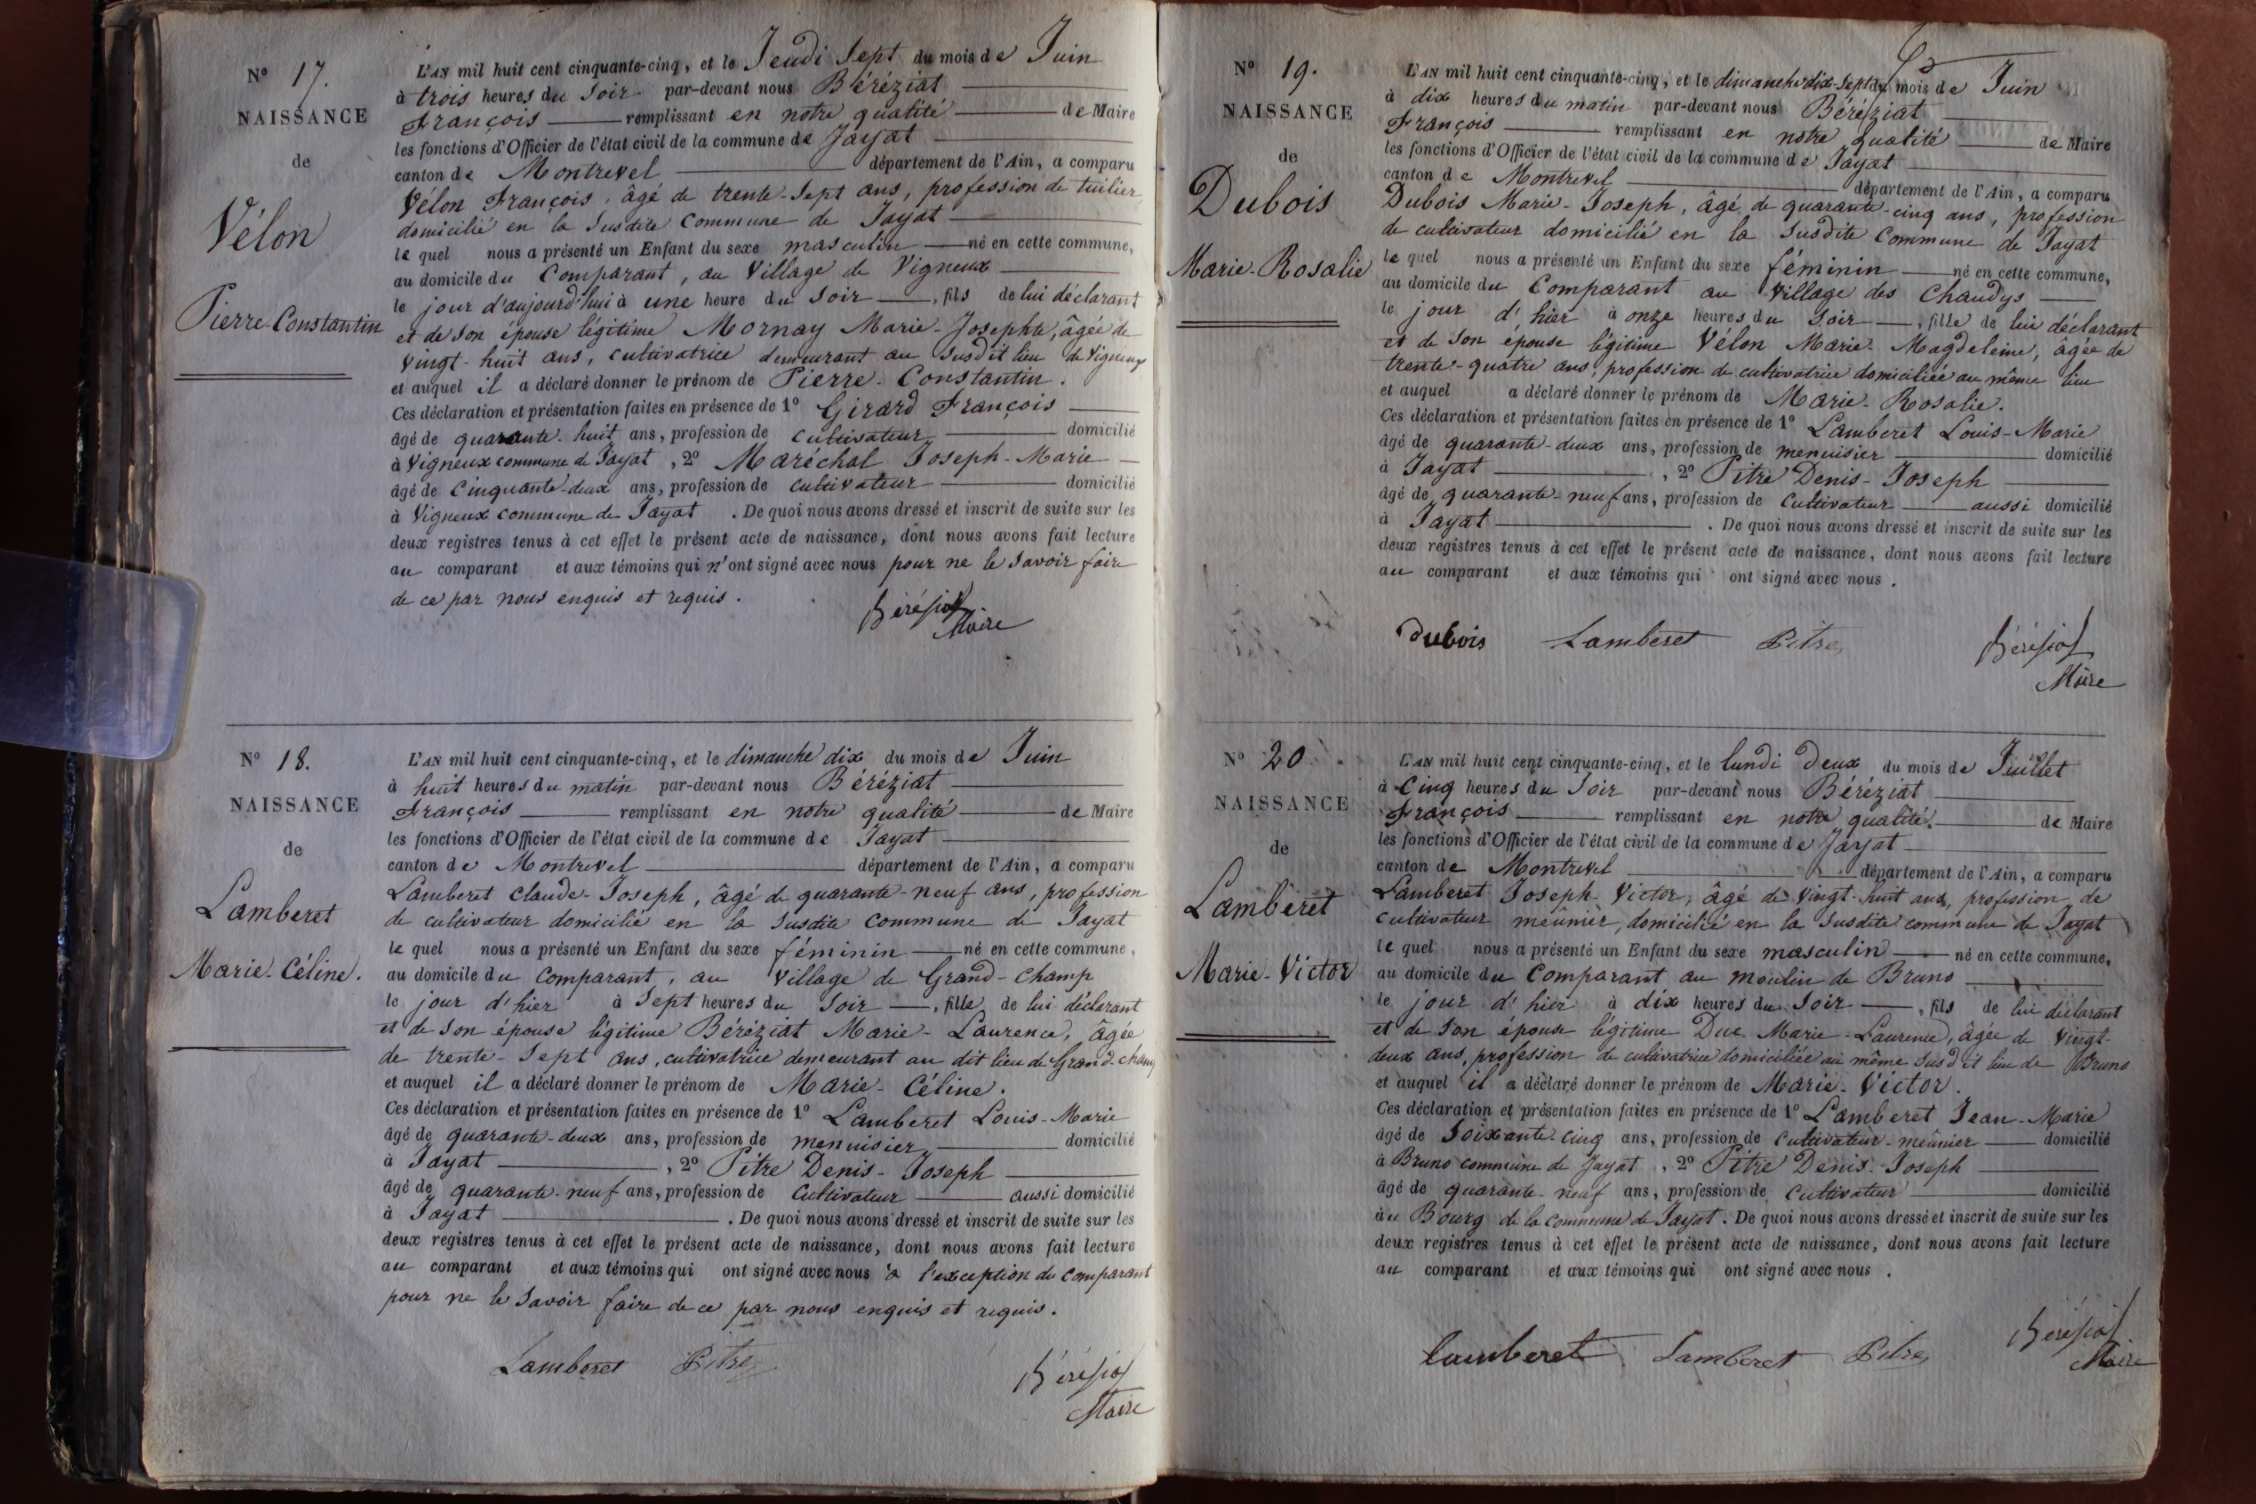 N° 17.
NAISSANCE
de
Vélon
Pierre-Constantin
L'AN mil huit cent cinquante-cinq, et le Jeudi Sept du mois de Juin
à trois heures du Soir par-devant nous Béréziat
François remplissant en notre qualité de Maire
les fonctions d'Officier de l'état civil de la commune de Jayat
canton de Montrevel département de l'Ain, a comparu
Vélon François, âgé de trente-Sept ans, profession de tuilier
domicilié en la Susdite Commune de Jayat
le quel nous a présenté un Enfant du sexe masculin né en cette commune,
au domicile du Comparant, au Village de Vigneux
le jour d'aujourd'hui à une heure du Soir, fils de lui déclarant
et de son épouse légitime Mornay Marie-Josephte, âgée de
Vingt-huit ans, cultivatrice demeurant au susdit lieu de Vigneux
et auquel il a déclaré donner le prénom de Pierre-Constantin.
Ces déclaration et présentation faites en présence de 1° Girard François
âgé de quarante-huit ans, profession de cultivateur domicilié
à Vigneux commune de Jayat, 2° Maréchal Joseph-Marie
âgé de Cinquante-deux ans, profession de cultivateur domicilié
à Vigneux commune de Jayat. De quoi nous avons dressé et inscrit de suite sur les
deux registres tenus à cet effet le présent acte de naissance, dont nous avons fait lecture
au comparant et aux témoins qui n'ont signé avec nous pour ne le Savoir faire
de ce par nous enquis et requis.
Béréziat
Maire
N° 18.
NAISSANCE
de
Lamberet
Marie-Céline.
L'AN mil huit cent cinquante-cinq, et le dimanche dix du mois de Juin
à huit heures du matin par-devant nous Béréziat
François remplissant en notre qualité de Maire
les fonctions d'Officier de l'état civil de la commune de Jayat
canton de Montrevel département de l'Ain, a comparu
Lamberet Claude-Joseph, âgé de quarante-neuf ans, profession
de cultivateur domicilié en la Susdite Commune de Jayat
le quel nous a présenté un Enfant du sexe féminin né en cette commune,
au domicile du Comparant, au Village de Grand-Champ
le jour d'hier à Sept heures du Soir, fille de lui déclarant
et de Son épouse légitime Béréziat Marie-Laurence, âgée
de trente-Sept ans, cultivatrice demeurant au dit lieu de Grand-champ
et auquel il a déclaré donner le prénom de Marie-Céline.
Ces déclaration et présentation faites en présence de 1° Lamberet Louis-Marie
âgé de quarante-deux ans, profession de menuisier domicilié
à Jayat, 2° Pitre Denis-Joseph
âgé de quarante-neuf ans, profession de Cultivateur aussi domicilié
à Jayat. De quoi nous avons dressé et inscrit de suite sur les
deux registres tenus à cet effet le présent acte de naissance, dont nous avons fait lecture
au comparant et aux témoins qui ont signé avec nous à l'exception du Comparant
pour ne le Savoir faire de ce par nous enquis et requis.
Lamberet Pitre Béréziat
Maire
N° 19.
NAISSANCE
de
Dubois
Marie-Rosalie
L'AN mil huit cent cinquante-cinq, et le dimanche dix-Sept du mois de Juin
à dix heures du matin par-devant nous Béréziat
François remplissant en notre qualité de Maire
les fonctions d'Officier de l'état civil de la commune de Jayat
canton de Montrevel département de l'Ain, a comparu
Dubois Marie-Joseph, âgé de quarante-cinq ans, profession
de cultivateur domicilié en la Susdite Commune de Jayat
le quel nous a présenté un Enfant du sexe féminin né en cette commune,
au domicile du Comparant au Village des Chaudys
le jour d'hier à onze heures du Soir, fille de lui déclarant
et de Son épouse légitime Vélon Marie-Magdeleine, âgée de
trente-quatre ans, profession de cultivatrice domiciliée au même lieu
et auquel a déclaré donner le prénom de Marie-Rosalie.
Ces déclaration et présentation faites en présence de 1° Lamberet Louis-Marie
âgé de quarante-deux ans, profession de menuisier domicilié
à Jayat, 2° Pitre Denis-Joseph
âgé de quarante-neuf ans, profession de Cultivateur aussi domicilié
à Jayat. De quoi nous avons dressé et inscrit de suite sur les
deux registres tenus à cet effet le présent acte de naissance, dont nous avons fait lecture
au comparant et aux témoins qui ont signé avec nous.
Dubois Lamberet Pitre Béréziat
Maire
N° 20
NAISSANCE
de
Lamberet
Marie-Victor
L'AN mil huit cent cinquante-cinq, et le lundi Deux du mois de Juillet
à Cinq heures du Soir par-devant nous Béréziat
François remplissant en notre qualité de Maire
les fonctions d'Officier de l'état civil de la commune de Jayat
canton de Montrevel département de l'Ain, a comparu
Lamberet Joseph Victor, âgé de Vingt-huit ans, profession de
cultivateur meûnier, domicilié en la Susdite commune de Jayat
le quel nous a présenté un Enfant du sexe masculin né en cette commune,
au domicile du Comparant au moulin de Bruno
le jour d'hier à dix heures du Soir, fils de lui déclarant
et de Son épouse légitime Duc Marie-Laurence, âgée de Vingt-
deux ans, profession de cultivatrice domiciliée au même susdit lieu de Bruno
et auquel il a déclaré donner le prénom de Marie-Victor.
Ces déclaration et présentation faites en présence de 1° Lamberet Jean-Marie
âgé de Soixante-cinq ans, profession de Cultivateur-meûnier domicilié
à Bruno commune de Jayat, 2° Pitre Denis-Joseph
âgé de quarante-neuf ans, profession de Cultivateur domicilié
au Bourg de la commune de Jayat. De quoi nous avons dressé et inscrit de suite sur les
deux registres tenus à cet effet le présent acte de naissance, dont nous avons fait lecture
au comparant et aux témoins qui ont signé avec nous.
Lamberet Lamberet Pitre Béréziat
Maire